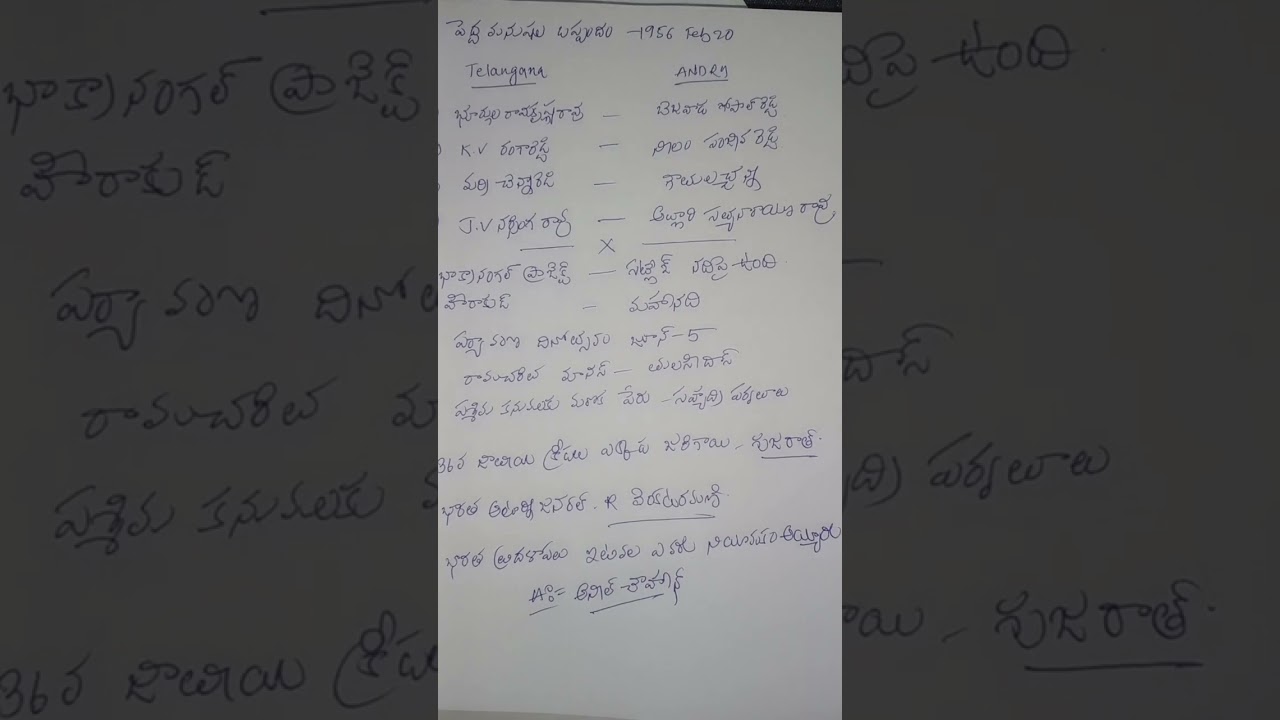 పెద్ద మనుషుల ఒప్పందం - 1956 Feb 20
Telangana ANDRA
బూర్గుల రామకృష్ణారావు - బెజవాడ గోపాలరెడ్డి
K.V రంగారెడ్డి - నీలం సంజీవరెడ్డి
మర్రి చెన్నారెడ్డి - గౌతులచ్చన్న
J.V నర్సింగరావు - అల్లూరి సత్యనారాయణ రావు
X
భాక్రానంగల్ ప్రాజెక్ట్ - సట్లెజ్ నదిపై ఉంది.
హీరాకుడ్ - మహానది
పర్యావరణ దినోత్సవం జూన్-5
రామచరిత మానస్ - తులసీదాస్
పశ్చిమ కనుమలకు మరొక పేరు - సహ్యాద్రి పర్వతాలు
36వ జాతీయ క్రీడలు ఎక్కడ జరిగాయి - గుజరాత్.
భారత అటార్నీ జనరల్ - R వెంకటరమణి.
భారత త్రిదళాపతులు ఇటీవల ఎవరు నియామకం అయ్యారు
A: = అనిల్ చౌహాన్